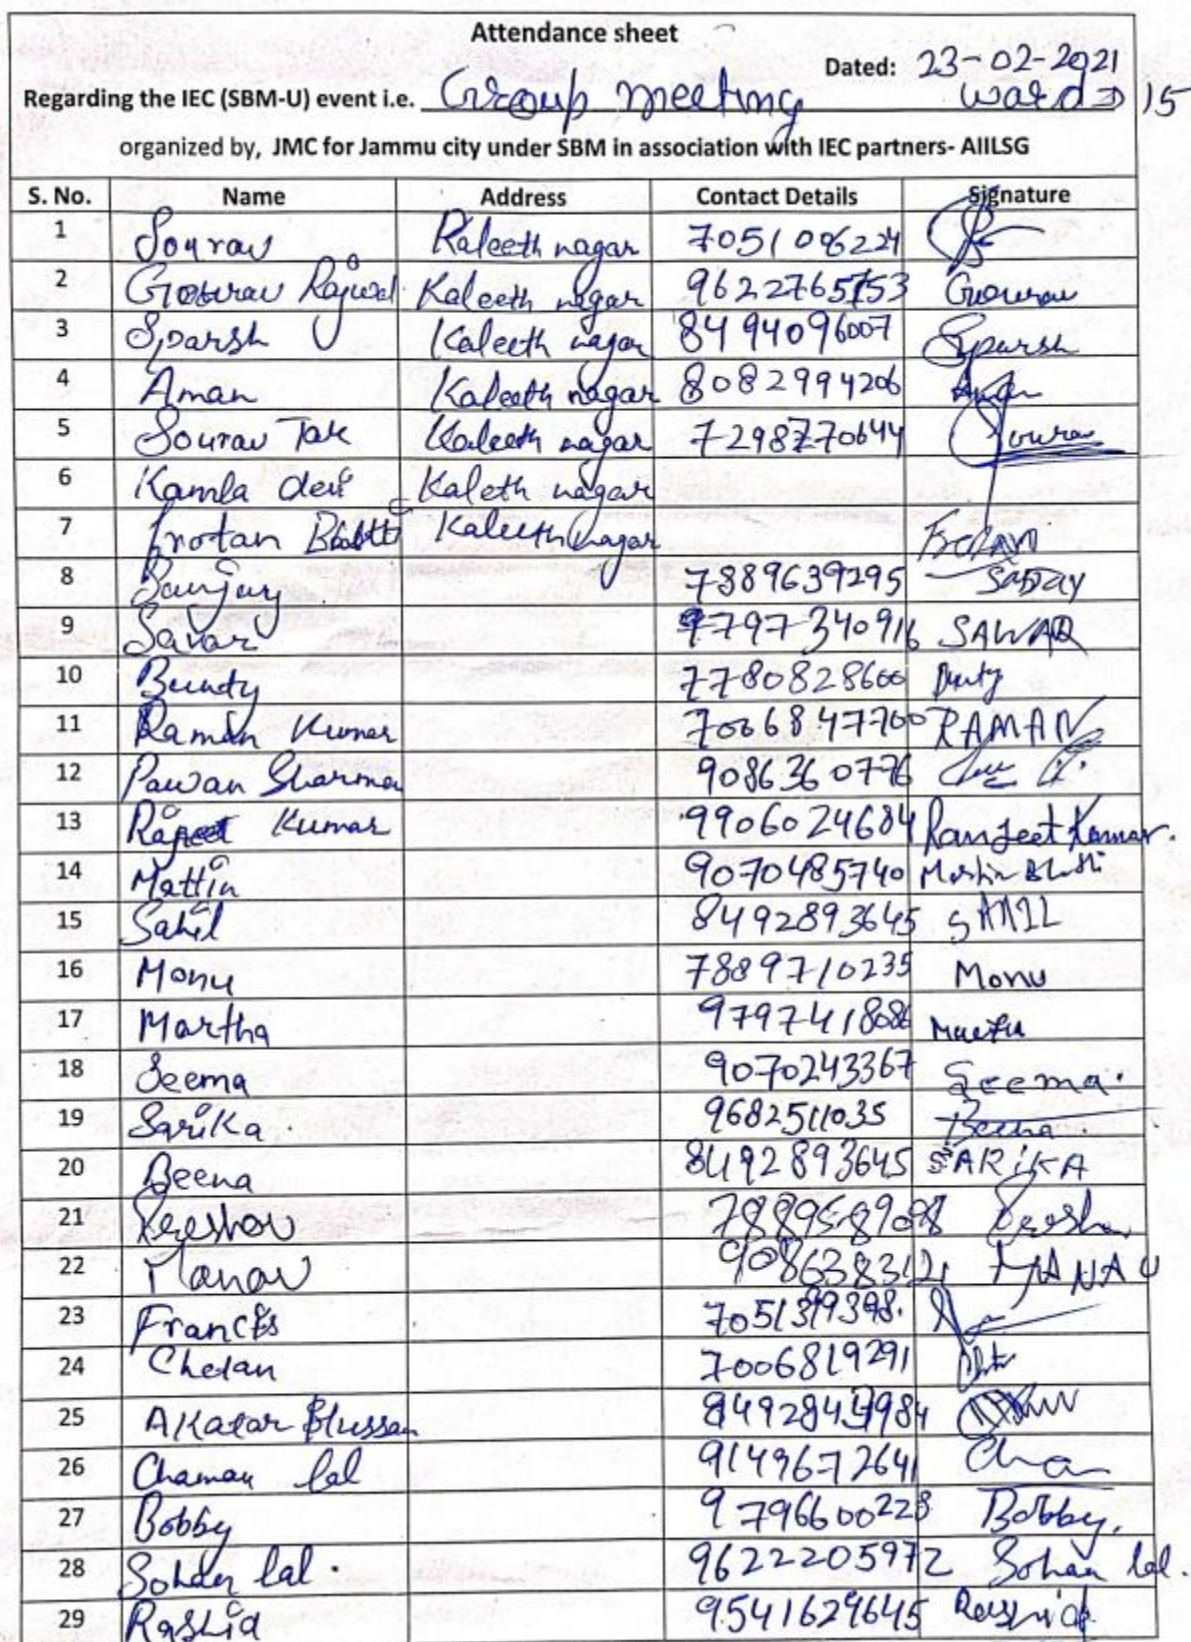 Attendance sheet
Dated: 23-02-2021
Regarding the IEC (SBM-U) event i.e. Group meeting ward 15
organized by, JMC for Jammu city under SBM in association with IEC partners- AIILSG
S. No. Name Address Contact Details Signature
1 Sourav Kaleeth nagar 7051086224
2 Gourav Rajwal Kaleeth nagar 9622765153 Gourav
3 Sparsh Kaleeth nagar 8494096007 Sparsh
4 Aman Kaleeth nagar 8082994206 Aman
5 Sourav Tak Kaleeth nagar 7298770644 Sourav
6 Kamla devi Kaleth nagar
7 Frotan Bhatti Kaleeth nagar
8 Sanjay 7889639295 SANJAY
9 Savar 9797340916 SAWAR
10 Bunty 7780828600 Bunty
11 Raman Kumar 7006847760 RAMAN
12 Pawan Sharma 9086360776
13 Ranjeet Kumar 9906024684 Ranjeet Kumar.
14 Mattin 9070485740
15 Sahil 8492893645 SAHIL
16 Monu 7889710235 Monu
17 Martha 9797418086 Martha
18 Seema 9070243367 Seema.
19 Sarika 9682511035 Beena
20 Beena 8492893645 SARIKA
21 Keeshov
22 Manav MANAV
23 Francis
24 Chetan 7006819291
25 AKatar Hussan
26 Chaman lal 9149672641 Cha
27 Bobby 9796600228 Bobby,
28 Sohan lal. 9622205972 Sohan lal.
29 Rashid 9541629645 Rashid